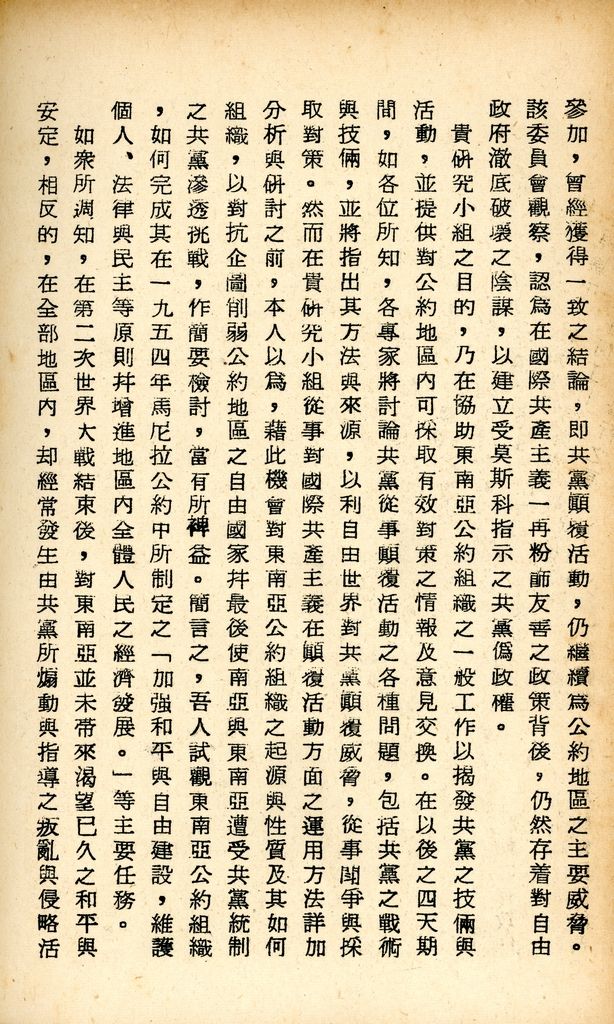 參加，曾經獲得一致之結論，即共黨顚覆活動，仍繼續爲公約地區之主要威脅。
該委員會觀察，認爲在國際共產主義一再粉飾友善之政策背後，仍然存着對自由
政府澈底破壞之陰謀，以建立受莫斯科指示之共黨僞政權。
貴硏究小組之目的，乃在協助東南亞公約組織之一般工作以揭發共黨之技倆與
活動，並提供對公約地區內可採取有效對策之情報及意見交換。在以後之四天期
間，如各位所知，各專家將討論共黨從事顚覆活動之各種問題，包括共黨之戰術
與技倆，並將指出其方法與來源，以利自由世界對共黨顚覆威脅，從事鬪爭與採
取對策。然而在貴硏究小組從事對國際共產主義在顚覆活動方面之運用方法詳加
分析與硏討之前，本人以爲，藉此機會對東南亞公約組織之起源與性質及其如何
組織，以對抗企圖削弱公約地區之自由國家并最後使南亞與東南亞遭受共黨統制
之共黨滲透挑戰，作簡要檢討，當有所裨益。簡言之，吾人試觀東南亞公約組織
，如何完成其在一九五四年馬尼拉公約中所制定之「加强和平與自由建設，維護
個人、法律與民主等原則幷增進地區內全體人民之經濟發展。」等主要任務。
如衆所週知，在第二次世界大戰結束後，對東南亞並未帶來渴望已久之和平與
安定，相反的，在全部地區內，却經常發生由共黨所煽動與指導之叛亂與侵略活